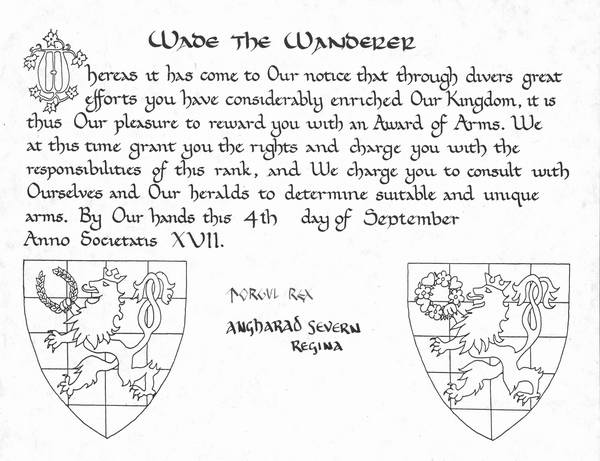 Wade the Wanderer
Whereas it has come to Our notice that through divers great
efforts you have considerably enriched Our Kingdom, it is
thus Our pleasure to reward you with an Award of Arms. We
at this time grant you the rights and charge you with the
responsibilities of this rank, and We charge you to consult with
Ourselves and Our heralds to determine suitable and unique
arms. By Our hands this 4th day of September
Anno Societatis XVII.
Morgul Rex
Angharad Severn
Regina